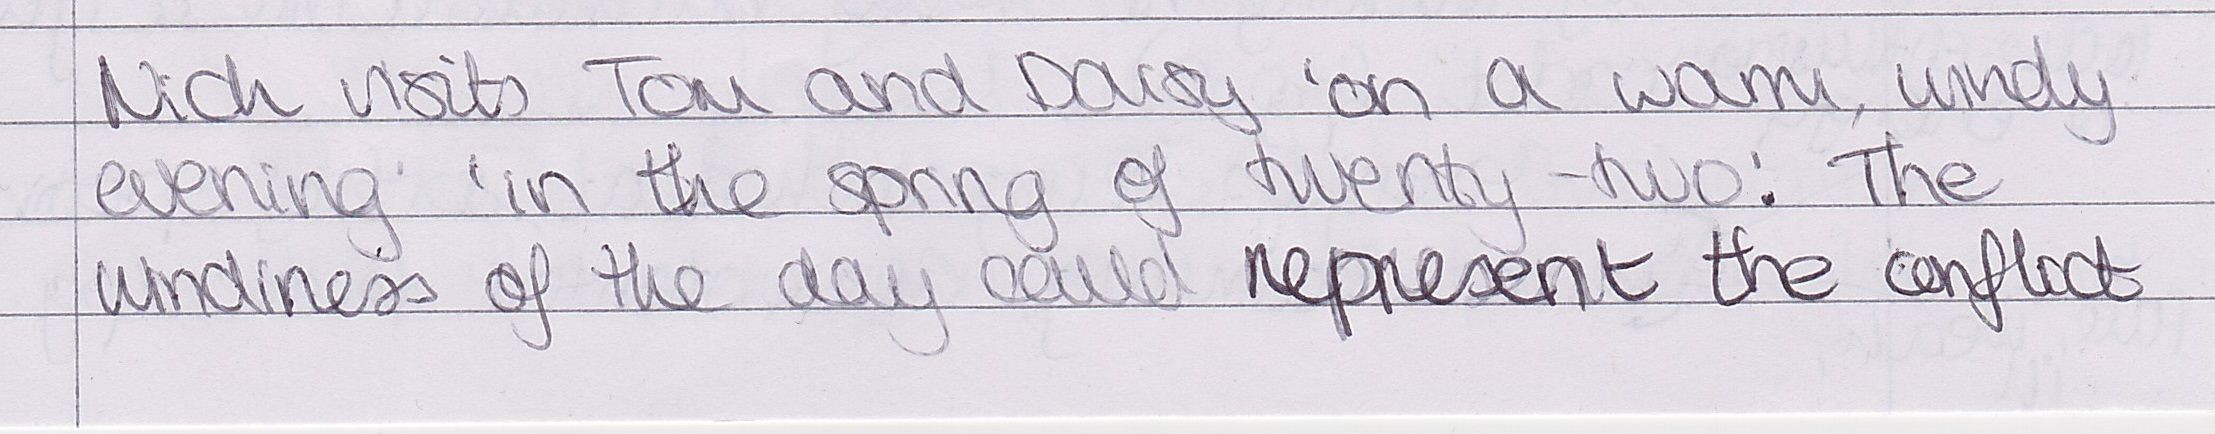 Nick visits Tom and Daisy 'on a warm, windy
evening' 'in the spring of twenty-two'. The
windiness of the day could represent the conflict